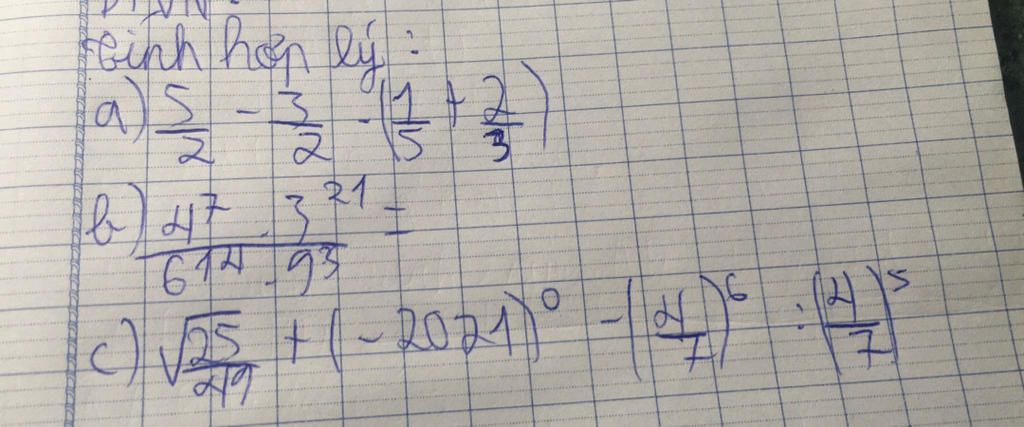 tính hợp lý :
a) 5/2 - 3/2 - (1/5 + 2/3)
b) 4^7 . 3^21 / 6^14 . 9^3 =
c) √25/49 + (-2021)^0 - (4/7)^6 : (4/7)^5